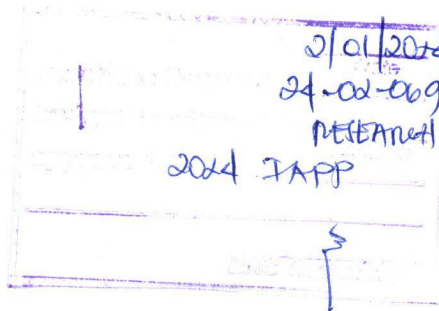 2/01/202
24-02-069
RESEARCH
2024 IAPP